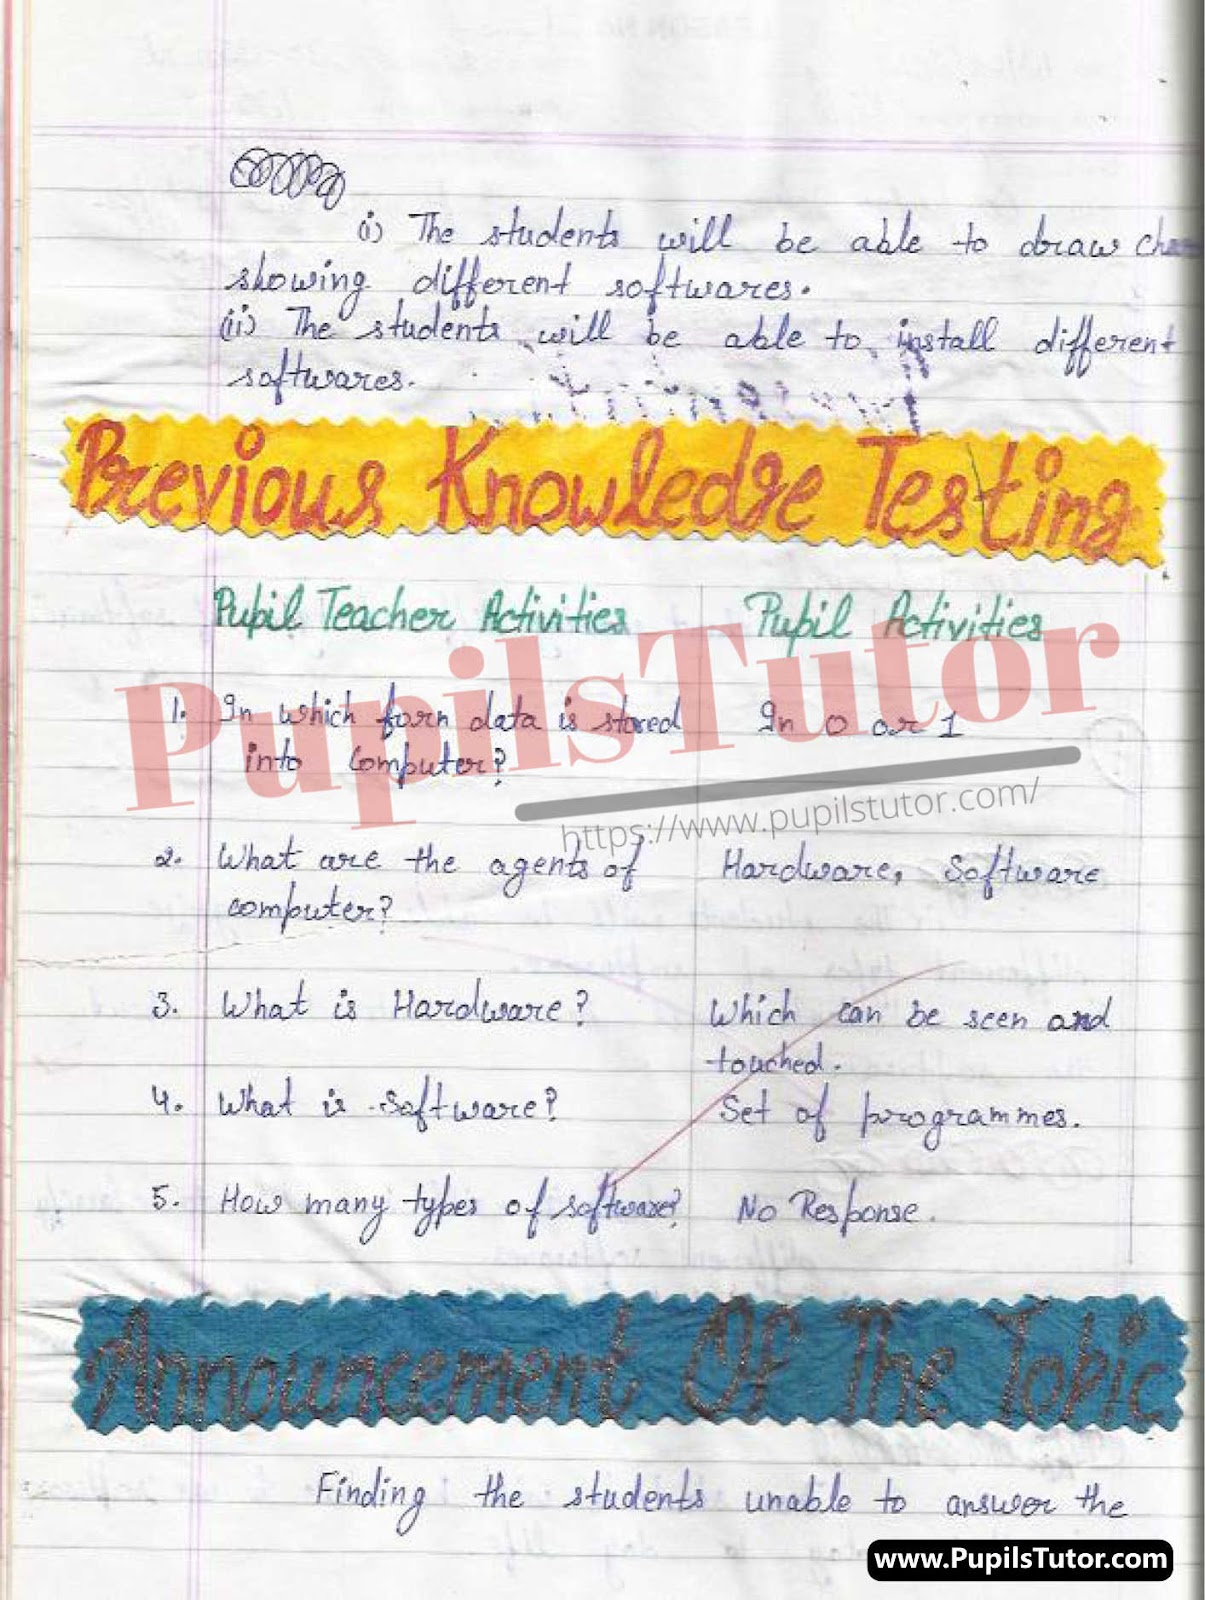 (i) The students will be able to draw
showing different softwares.
(ii) The students will be able to install different
softwares.
Previous Knowledge Testing
Pupil Teacher Activities Pupil Activities
1. In which form data is stored In 0 or 1
into computer?
2. What are the agents of Hardware, Software
computer?
3. What is Hardware? Which can be seen and
touched.
4. What is software? Set of programmes.
5. How many types of software? No Response.
Announcement Of The Topic
Finding the students unable to answer the
PupilsTutor
https://www.pupilstutor.com/
www.PupilsTutor.com